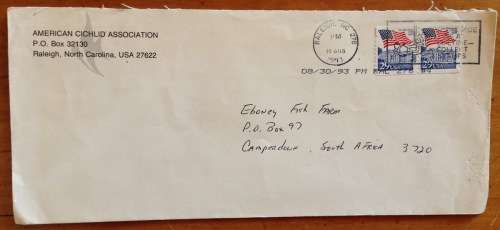 AMERICAN CICHLID ASSOCIATION
P.O. Box 32130
Raleigh, North Carolina, USA 27622
RALEIGH, NC 276
PM
1993
29 USA
29 USA
COLLECT
08/30/93 PM RAL 276 #4
Eboney Fish Farm
P.O Box 97
Camperdown, South Africa 3720